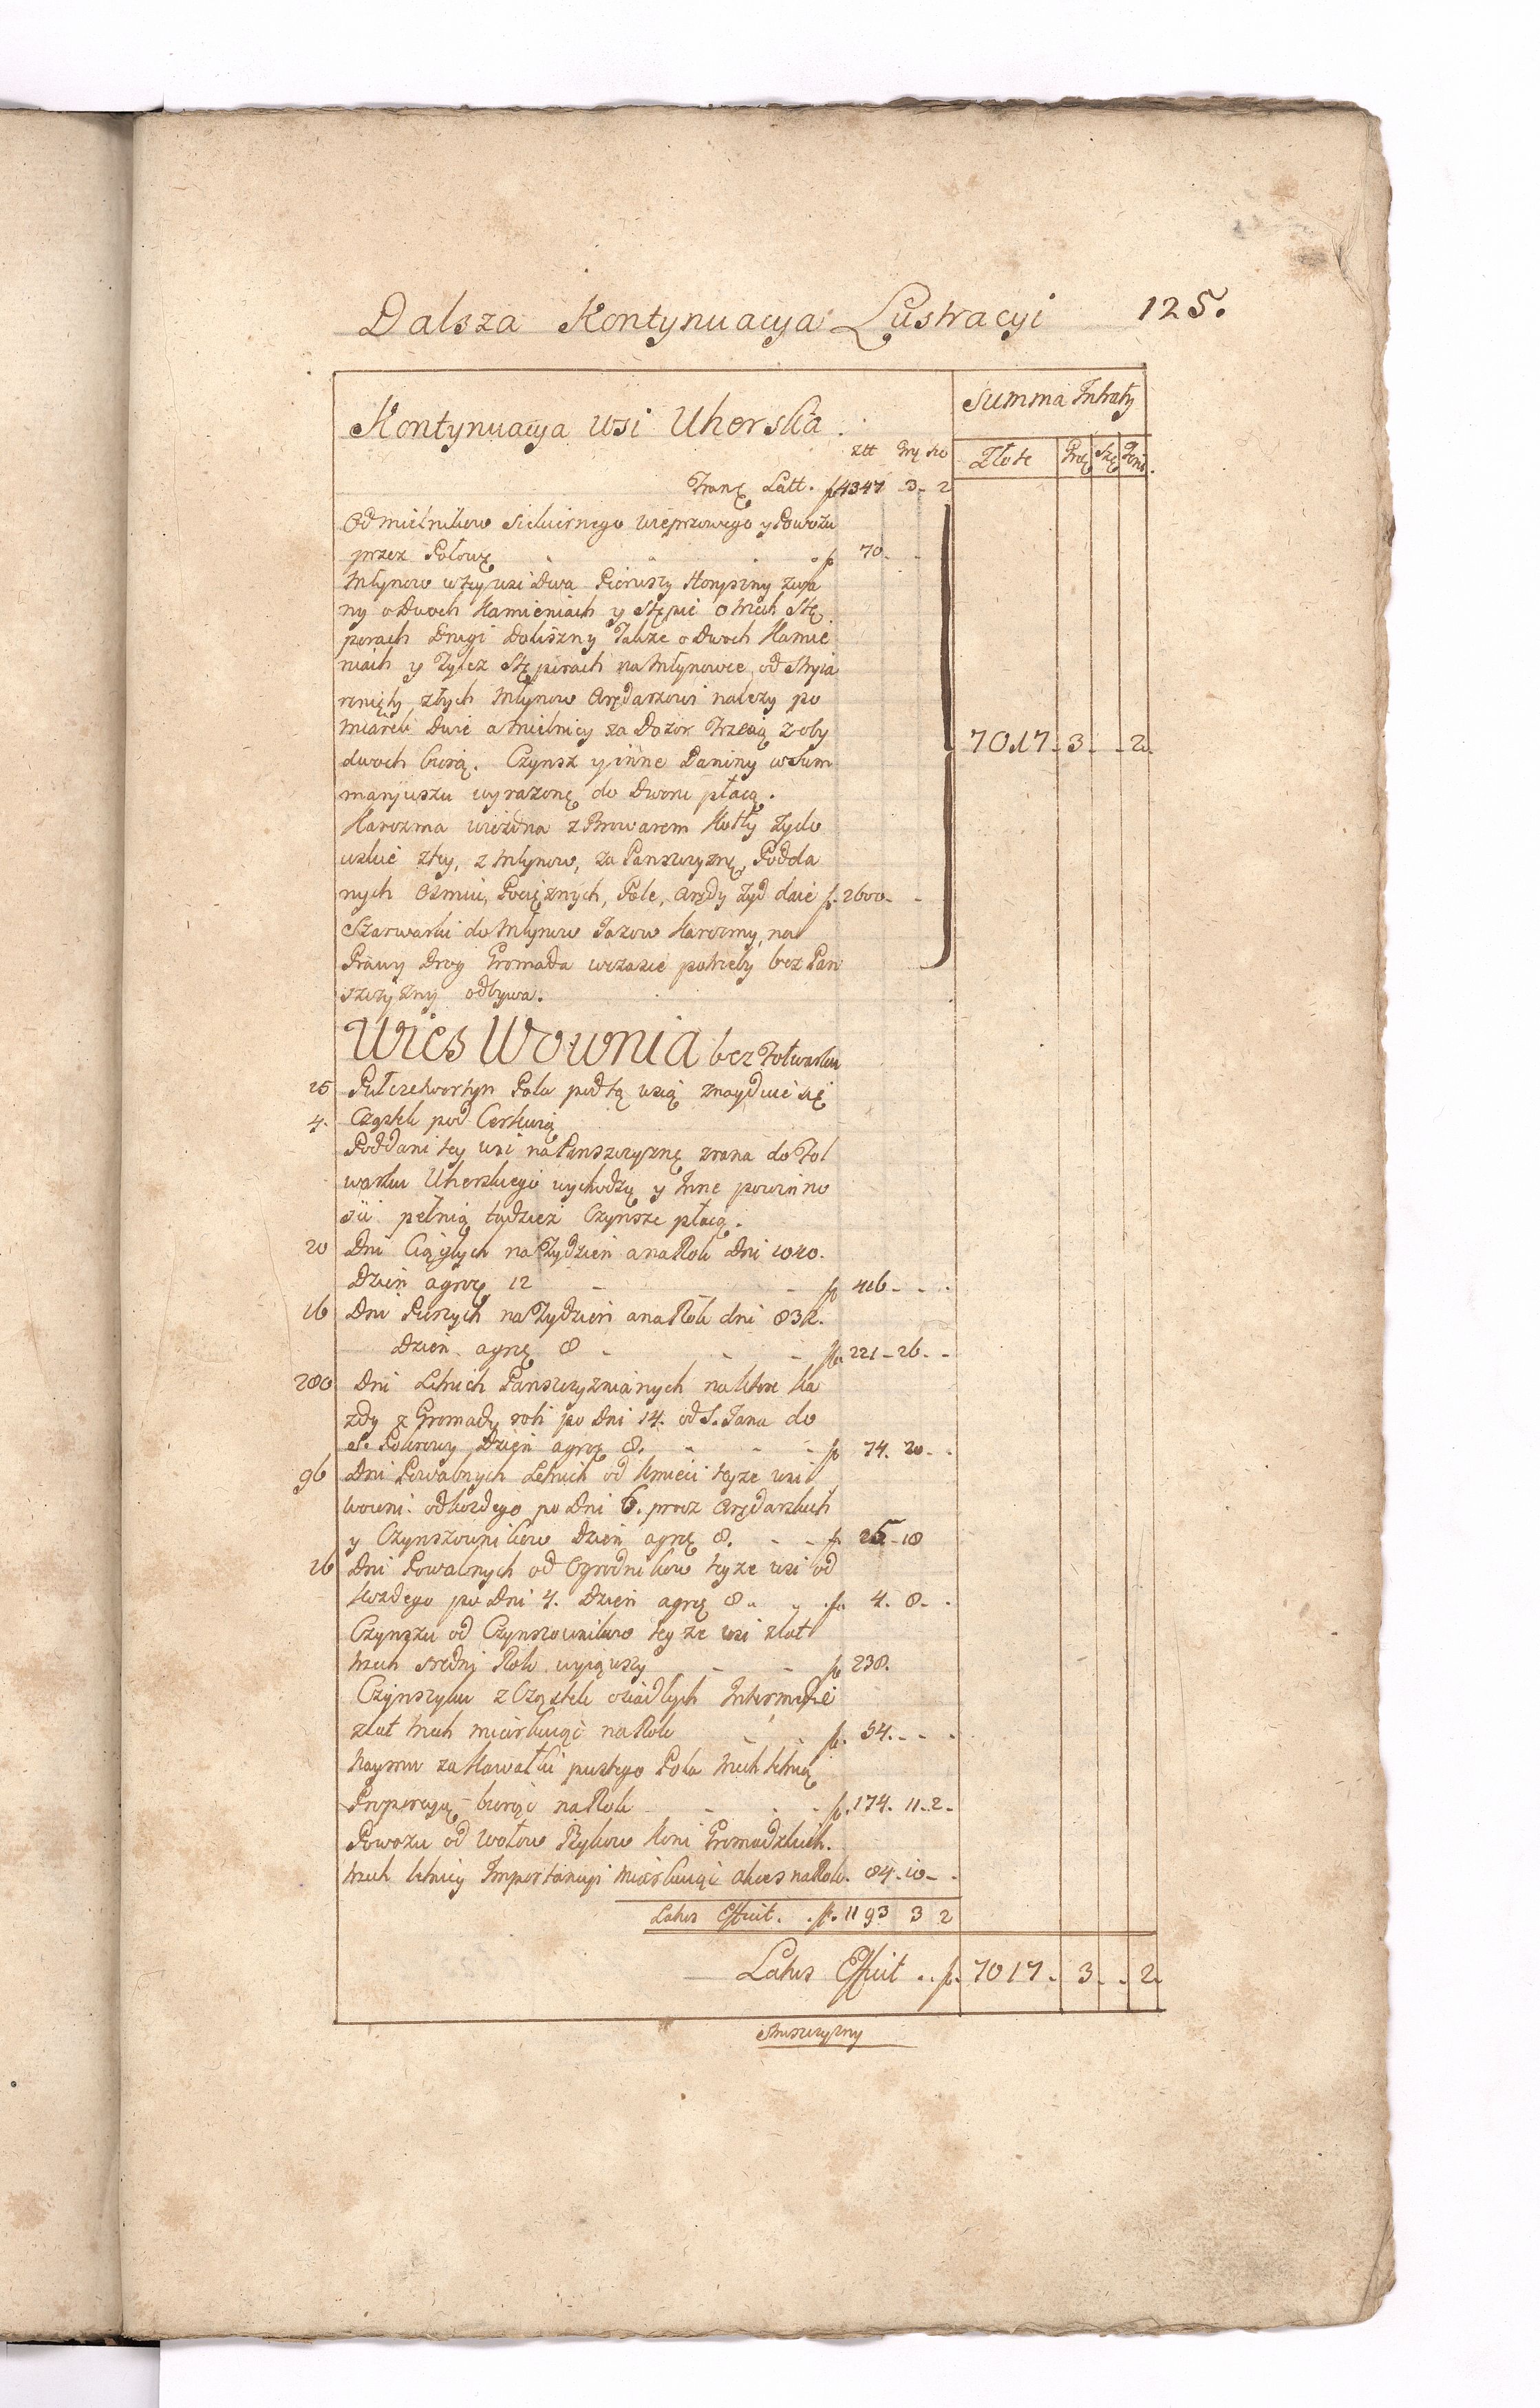 Dalsza Kontynuacya Lustracyi 125.
Summa Intraty
Kontynuacya Wsi Uherska.
złt Grę sze
Złote Grę Szę Feni.
Trans Latt. f. 4347 3 - 2
Od mielnikow wieprzowego y Powozu
przez Połowę f. 70 - -
Młynow w tey wsi Dwa Pierwszy zwa
ny o Dwoch Kamieniach y Stępie o trzech Stę
porach Drugi Doliszny Takze o Dwoch Kamie
niach y Tylez Stęporach na Młynowce od Stryia
z tych Młynow Arędarzowi nalezy po
miarek Dwie a mielnicy za Dozor Trzecią z oby
dwoch biorą. Czynsz y inne Daniny w Sum
maryuszu wyrazone do Dworu płacą.
7017 - 3 - - 2.
Karczma wiezdna z Browarem Kotły
z tey, z Młynow, za Panszczyznę Podda
nych Osmiu, Pocięznych, Pole, Arędy Zyd daie f. 2600 - -
Szarwarki do Młynow Jazow Karczmy, na
Prawy Drog Gromada wczasie potrzeby bez Pan
szczyzny odbywa.
Wies Wownia bez Folwarku
25 Pułczetwortyn Pola pod tą wsią znayduie się
4. Cząstek pod Cerkwią
Poddani tey wsi na Panszczyznę zrana do Fol
warku Uherskiego wychodzą y Inne powinno
sci pełnią tudziez Czynsze płacą.
20 Dni Ciągłych na Tydzien a na Rok Dni 1040.
Dzien a grę 12 - - f. 416 - - -
16 Dni Pieszych na Tydzien a na Rok dni 832.
Dzien a grę 8 - - - f. 221 - 26 - -
280 Dni Letnich Panszczyznianych na ktore ka
zdy z Gromady robi po Dni 14. od S. Jana do
S. Pokrowy Dzien a grę 8. - - - f. 74. 20 - -
96 Dni Powabnych Letnich od Kmieci teyze wsi
Wowni od kozdego po Dni 6. procz Arędarskich
y Czynszownikow Dzien a grę 8. - - f. 25 - 18
16 Dni Powabnych od Ogrodnikow teyze wsi od
kozdego po Dni 4. Dzien a grę 8 - - f. 4. 8 - -
Czynszu od Czynszownikow teyze wsi z lat
trzech sredni Rok wyiąwszy - - f. 238.
Czynszyku z Cząstek osiadłych
z lat trzech miarkuiąc na Rok - - f. 54. - - -
Naymu za Kawałki pustego Pola trzech letnią
Proporcyą biorąc na Rok - - - f. 174. 11. 2 -
Powozu od Wołow Bykow Koni Gromadzkich.
trzech letniey Importancyi miarkuiąc na Rok. 84. 10 - -
Latus Efficit. f. 1193 3 2
Latus Efficit . . f. 7017. 3 - - 2.